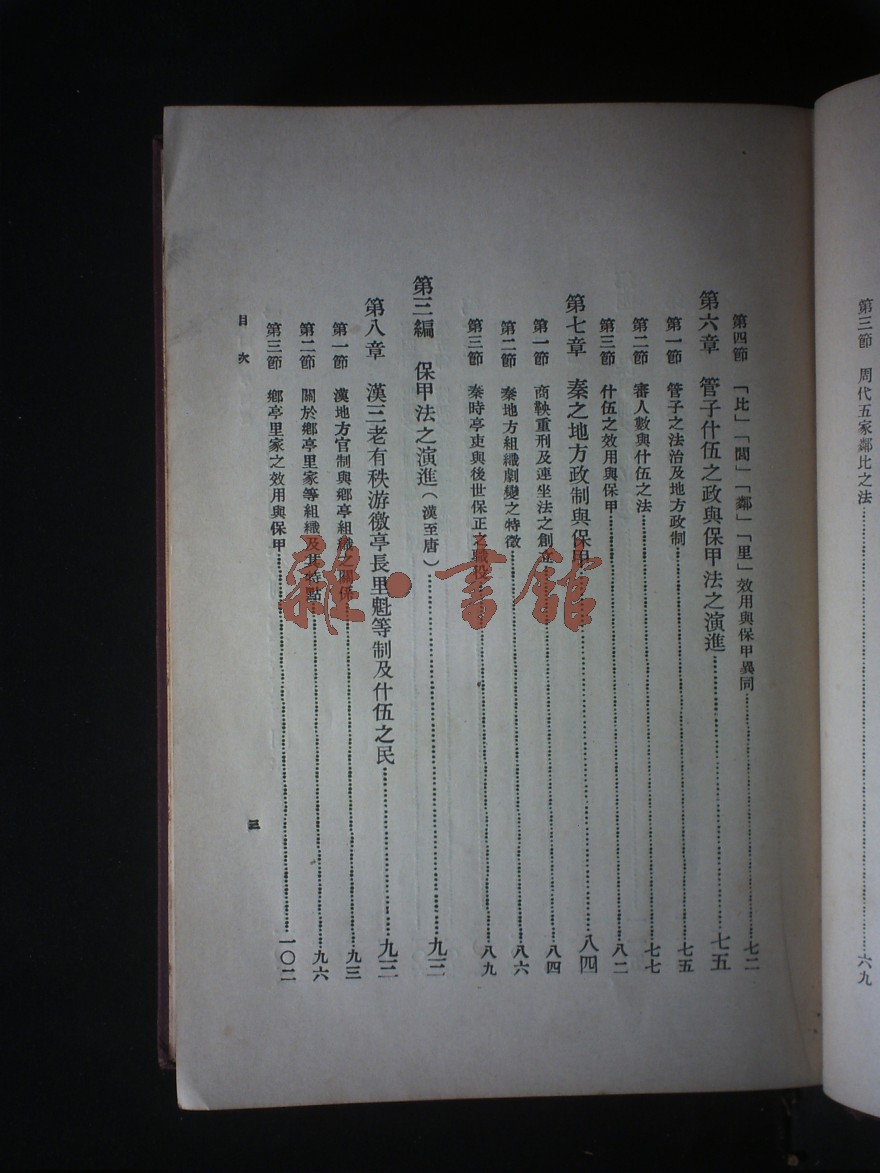 第三節 周代五家鄰比之法……六九
第四節 「比」「閭」「鄰」「里」效用與保甲異同……七二
第六章 管子什伍之政與保甲法之演進……七五
第一節 管子之法治及地方政制……七五
第二節 審人數與什伍之法……七七
第三節 什伍之效用與保甲……八二
第七章 秦之地方政制與保甲……八四
第一節 商鞅重刑及連坐法之創立……八四
第二節 秦地方組織劇變之特徵……八六
第三節 秦時亭吏與後世保正之職役……八九
第三編 保甲法之演進(漢至唐)……九三
第八章 漢三老有秩游徼亭長里魁等制及什伍之民……九三
第一節 漢地方官制與鄉亭組織之關係……九三
第二節 關於鄉亭里家等組織及其特點……九六
第三節 鄉亭里家之效用與保甲……一〇二
目次
三
雜·書館